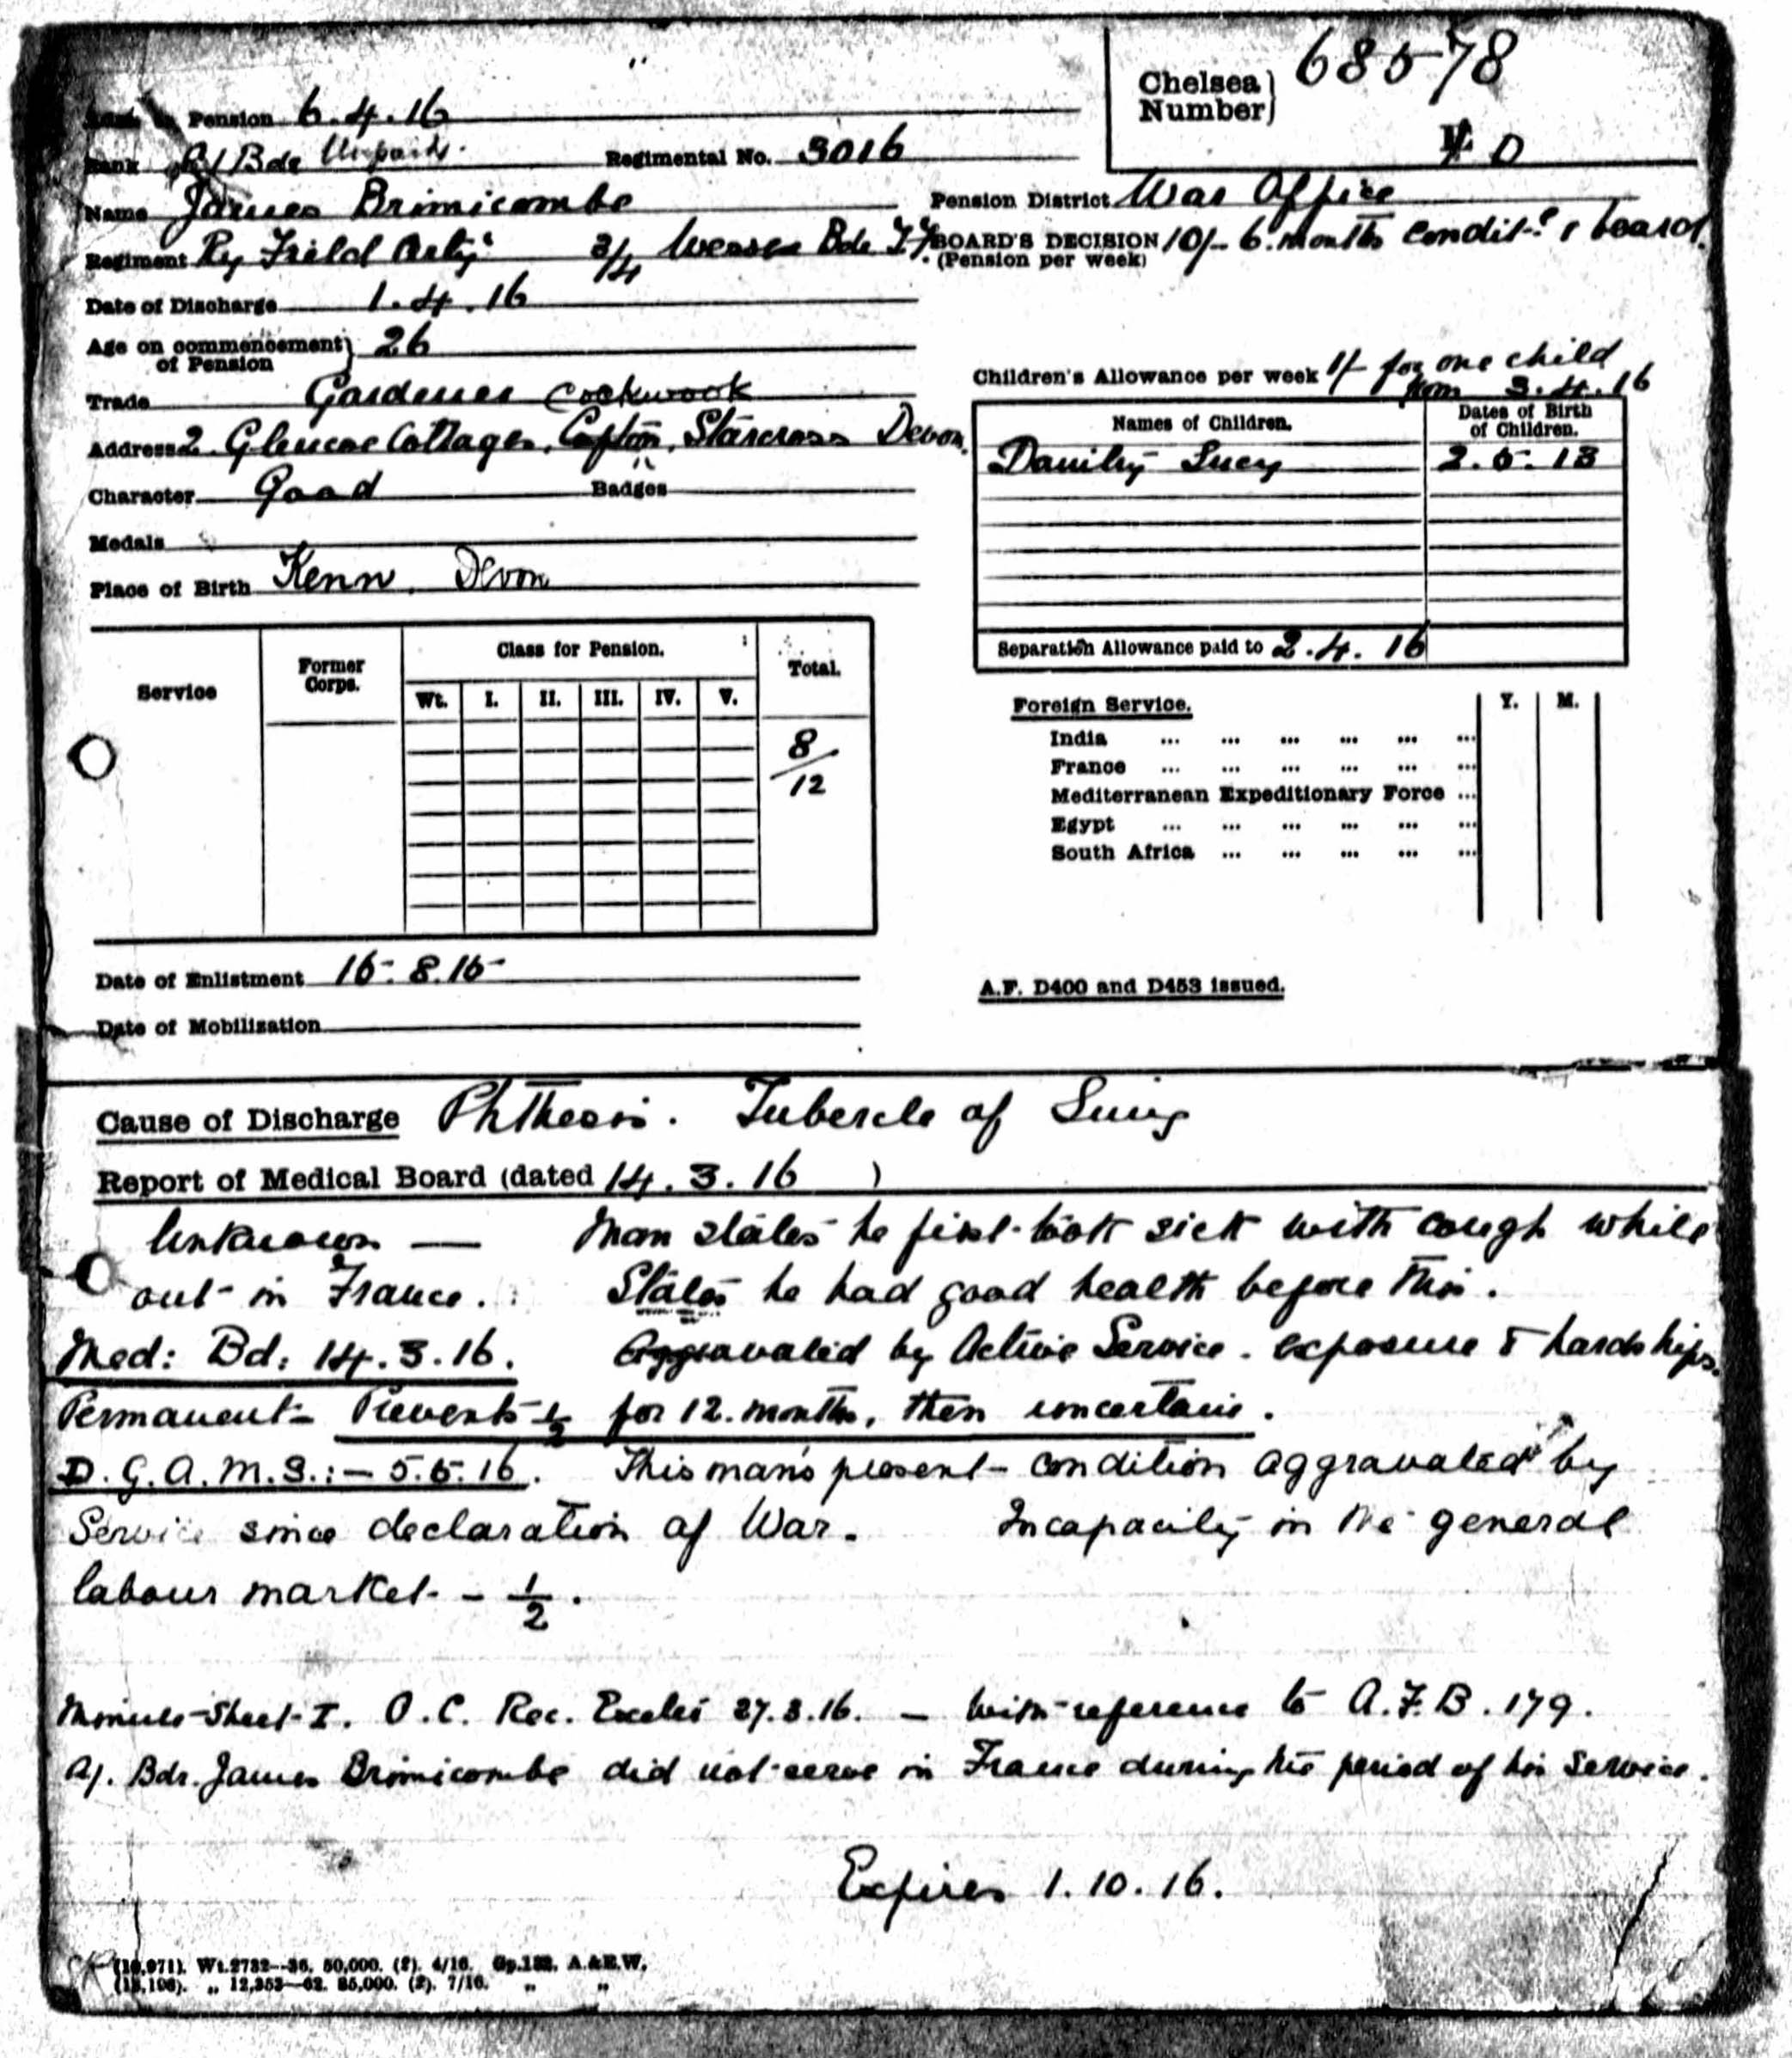 Chelsea Number} 68578
D
Pension 6.4.16
Rank A/Bdr Unpaid. Regimental No. 3016
Name James Brimicombe
Pension District War Office
Regiment Ry Field Arty 3/4 Wessex Bde
BOARD'S DECISION (Pension per week) 10/- 6 months condit. & board.
Date of Discharge 1.4.16
Age on commencement of Pension} 26
Children's Allowance per week 1/- for one child
from 3.4.16
Trade Gardener Cockwook
Address 2 Glencoe Cottages, Cofton, Starcross Devon.
Names of Children. Dates of Birth of Children.
Lucy 2.5.13
Character Good Badges "
Medals
Place of Birth Kenn, Devon
Separation Allowance paid to 2.4.16
Service Former Corps. Class for Pension. Total.
Wt. I. II. III. IV. V.
8/12
Foreign Service. Y. M.
India ... ... ... ... ... ...
France ... ... ... ... ... ...
Mediterranean Expeditionary Force ...
Egypt ... ... ... ... ... ...
South Africa ... ... ... ... ...
Date of Enlistment 16.8.15
A.F. D400 and D453 issued.
Date of Mobilization
Cause of Discharge Phthesis. Tubercle of Lung
Report of Medical Board (dated 14.3.16 )
Unknown — Man states he first took sick with cough while
out in France. States he had good health before this.
Med: Bd: 14.3.16. Aggravated by Active Service. exposure & hardships.
Permanent- Prevents ½ for 12. months, then uncertain.
D.G.A.M.S.:- 5.5.16. This man's present condition aggravated by
Service since declaration of War. Incapacity in the general
labour market - ½.
Minute Sheet I. O.C. Rec. Exeter 27.3.16. — With reference to A.F.B. 179.
A/. Bdr. James Brimicombe did not serve in France during the period of his service.
Expires 1.10.16.
(10,971). Wt.2732—36. 50,000. (2). 4/16. Gp.132. A.&E.W.
(13,106). „ 12,353—62. 85,000. (2). 7/16. „ „